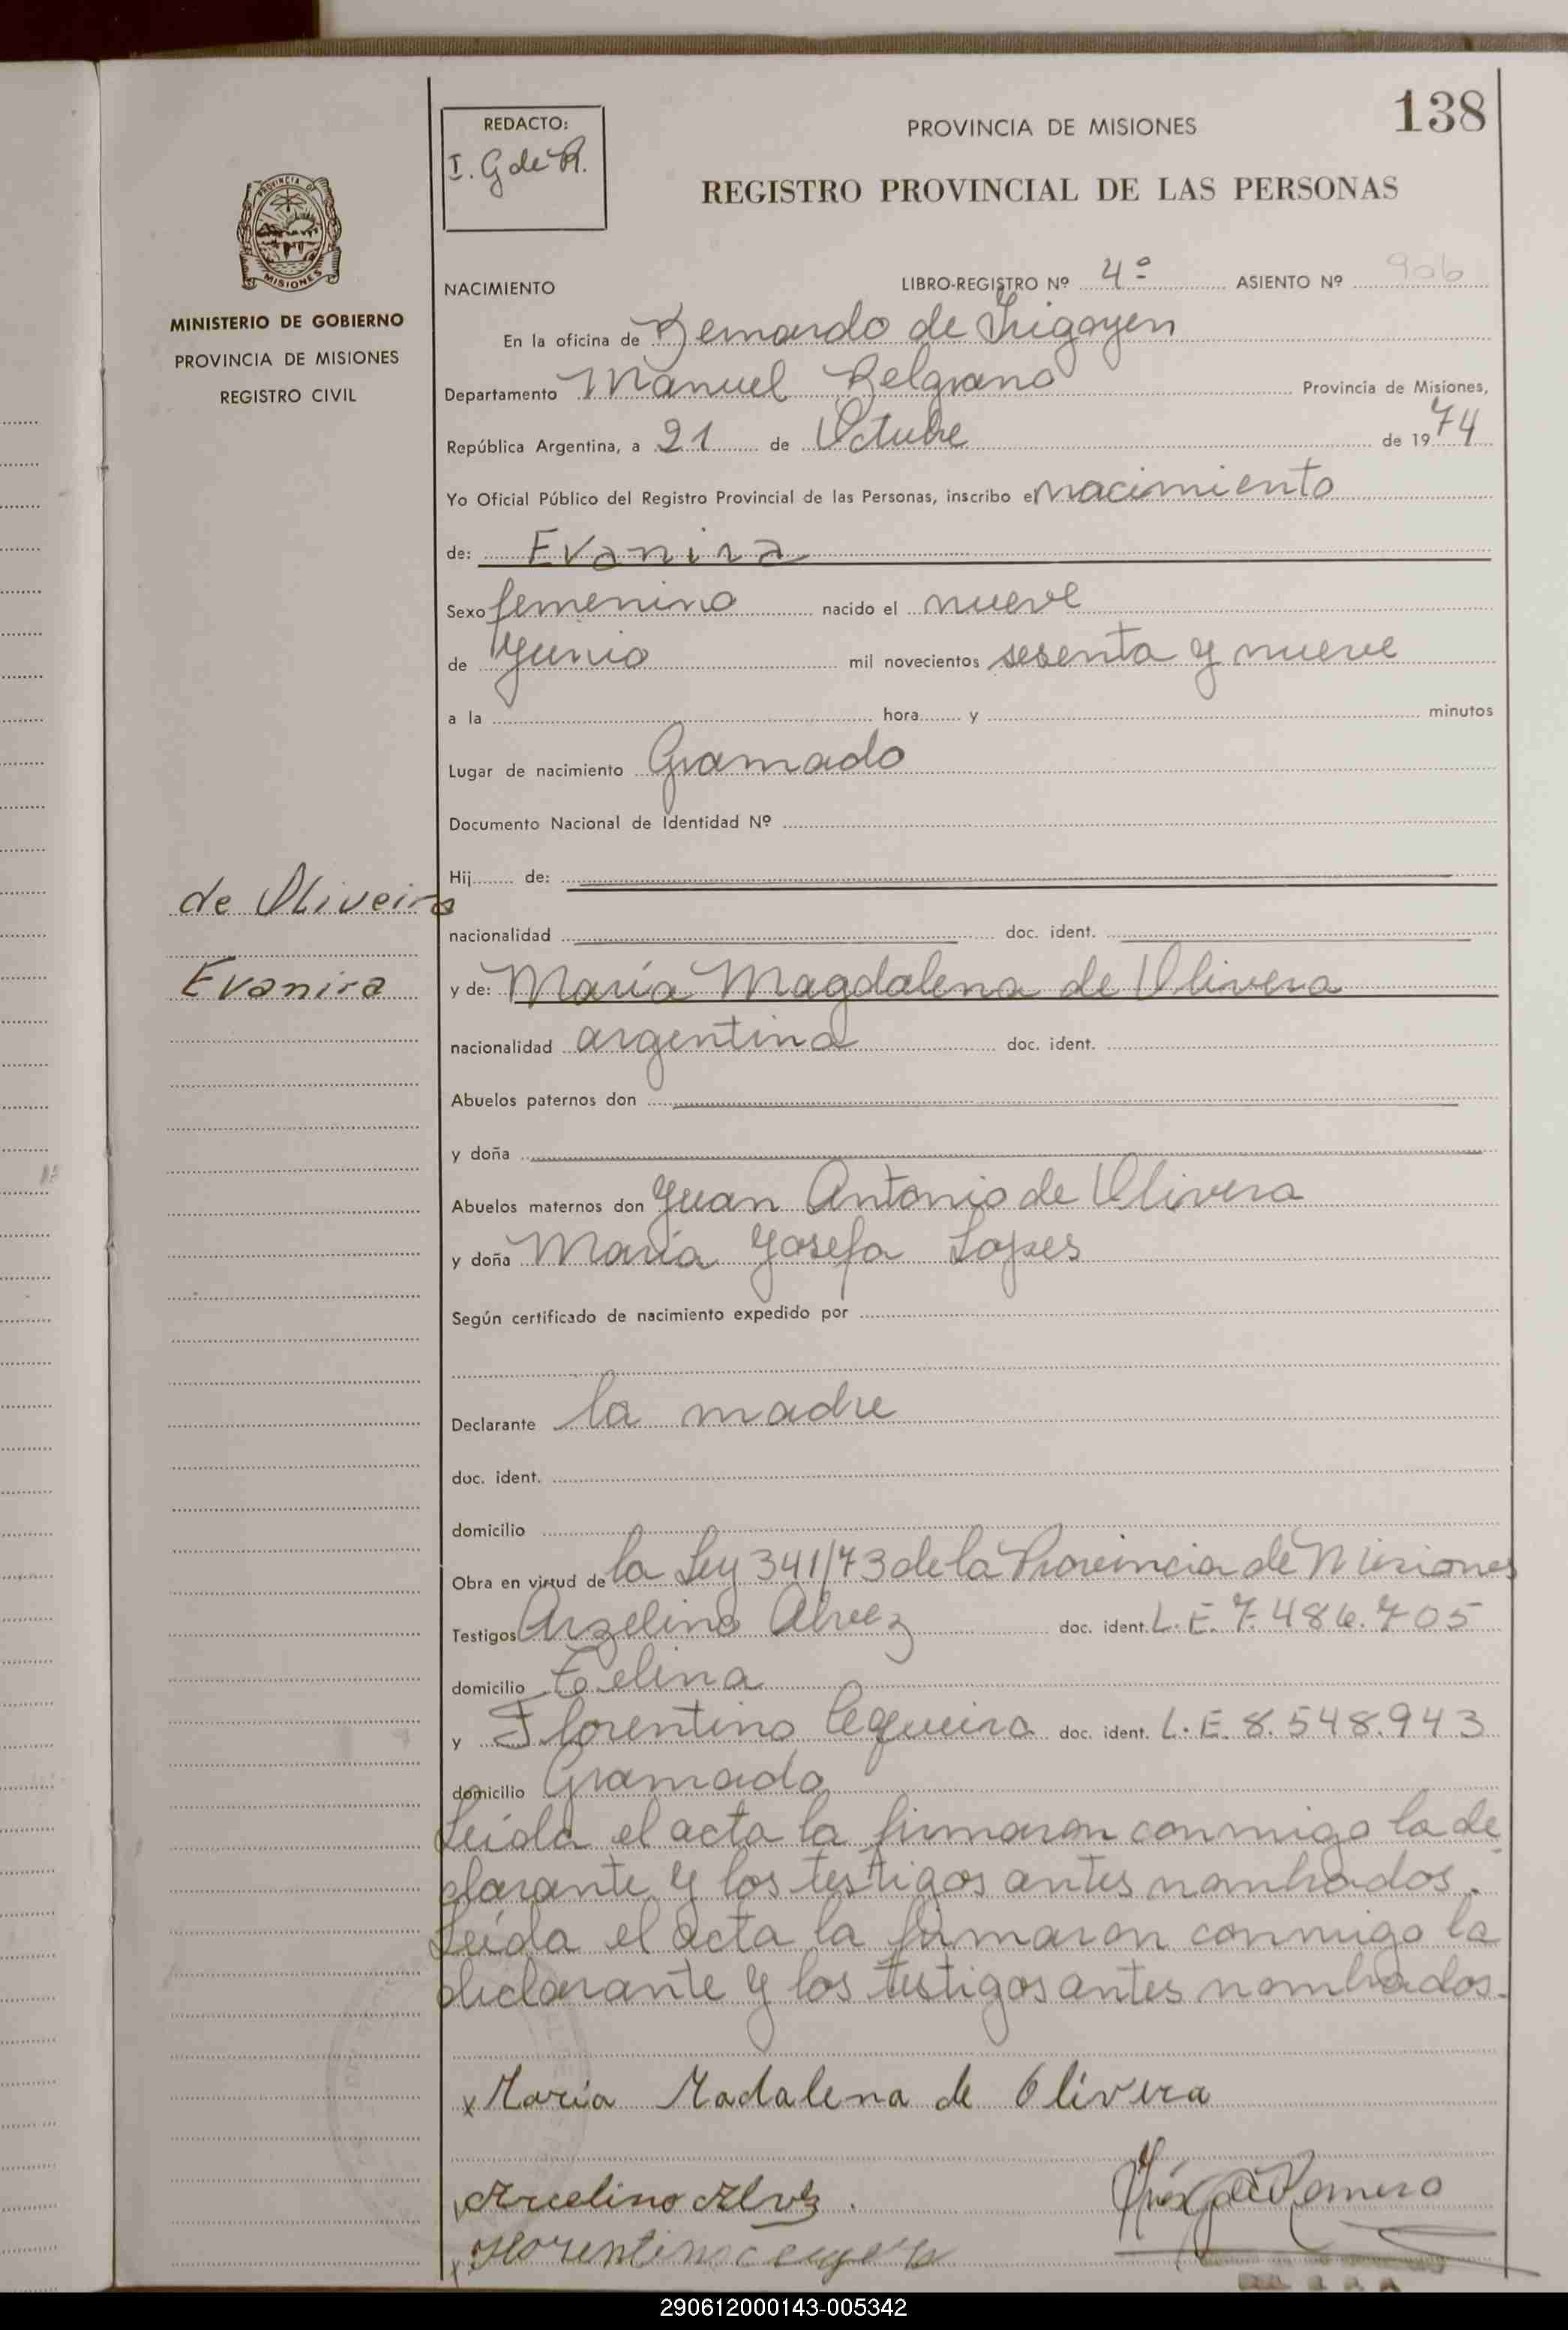 138
REDACTO:
I. G de R.
PROVINCIA DE MISIONES
REGISTRO PROVINCIAL DE LAS PERSONAS
PROVINCIA DE
MISIONES
MINISTERIO DE GOBIERNO
PROVINCIA DE MISIONES
REGISTRO CIVIL
NACIMIENTO LIBRO-REGISTRO Nº 4º ASIENTO Nº 906
En la oficina de Bernardo de Irigoyen
Departamento Manuel Belgrano Provincia de Misiones,
República Argentina, a 21 de Octubre de 1974
Yo Oficial Público del Registro Provincial de las Personas, inscribo el nacimiento
de: Evanira
Sexo femenino nacido el nueve
de Junio mil novecientos sesenta y nueve
a la hora y minutos
Lugar de nacimiento Gramado
Documento Nacional de Identidad Nº
Hij de:
de Oliveira
nacionalidad doc. ident.
Evanira
y de: María Magdalena de Olivera
nacionalidad argentina doc. ident.
Abuelos paternos don
y doña
Abuelos maternos don Juan Antonio de Olivera
y doña María Josefa Lopes
Según certificado de nacimiento expedido por
Declarante la madre
doc. ident.
domicilio
Obra en virtud de la Ley 341/73 de la Provincia de Misiones
Testigos Arzelino Alvez doc. ident. L.E. 7.486.705
domicilio
y Florentino Cequeira doc. ident. L.E. 8.548.943
domicilio Gramado
Leída el acta la firmaron conmigo la de
clarante y los testigos antes nombrados.
Leída el acta la firmaron conmigo la
declarante y los testigos antes nombrados.
x María Madalena de Olivera
Arcelino Alvez.
Florentino
290612000143-005342